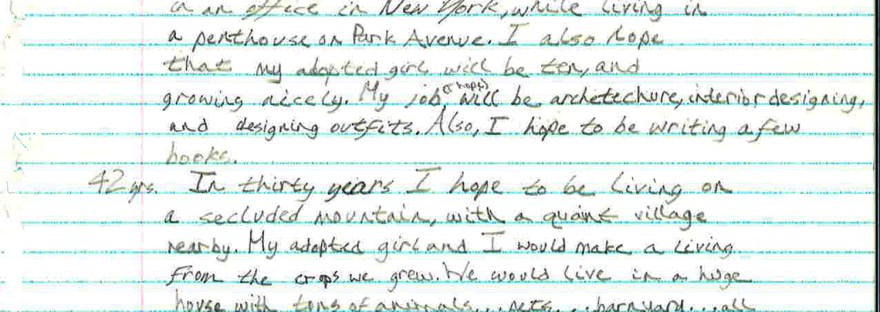 in an office in New York, while living in
a penthouse on Park Avenue. I also hope
that my adopted girl will be ten, and
growing nicely. My job, (I hope) will be archetechure, interior designing,
and designing outfits. Also, I hope to be writing a few
books.
42 yrs. In thirty years I hope to be living on
a secluded mountain, with a quaint village
nearby. My adopted girl and I would make a living
from the crops we grew. We would live in a huge
house with tons of animals...pets...barnyard...all